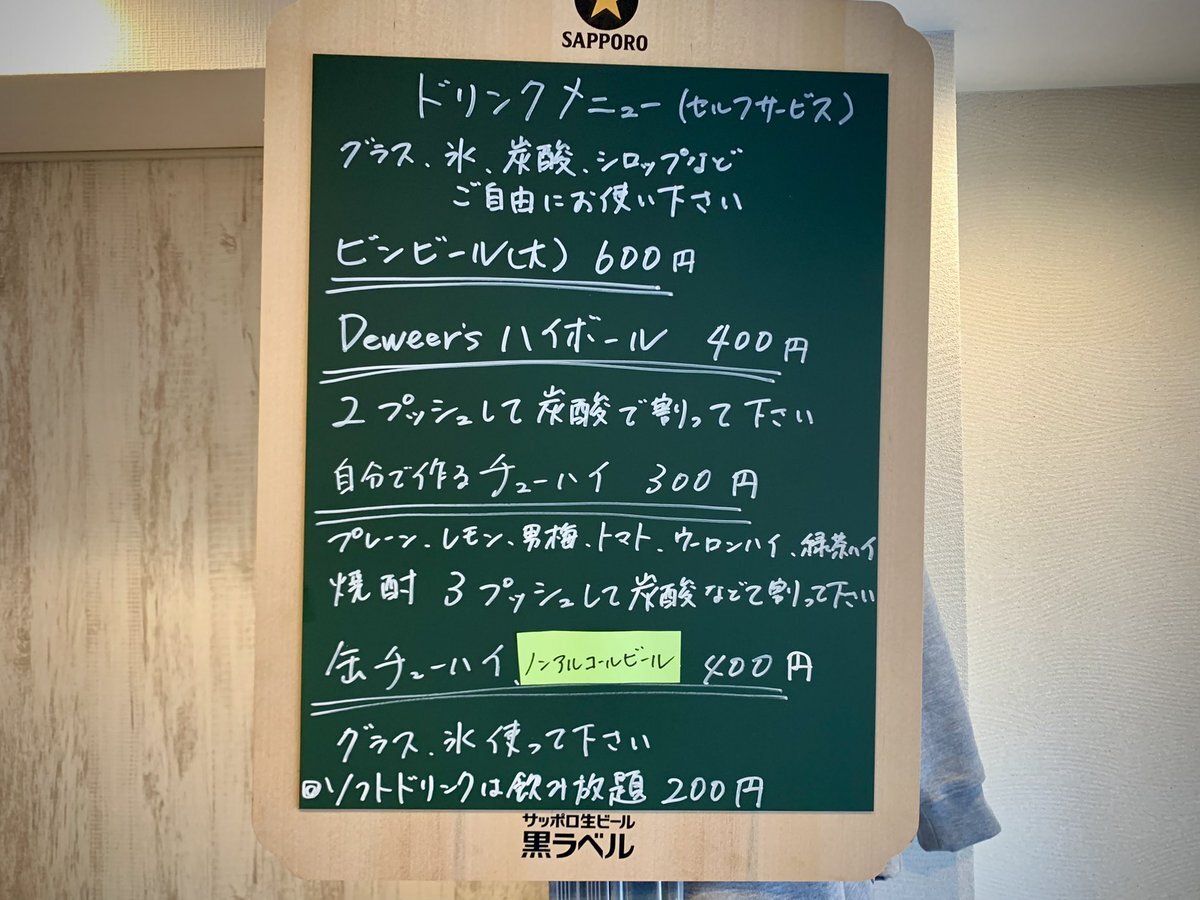 SAPPORO
ドリンクメニュー(セルフサービス)
グラス、氷、炭酸、シロップなど
ご自由にお使い下さい
ビンビール(大) 600円
Deweer's ハイボール 400円
2プッシュして炭酸で割って下さい
自分で作るチューハイ 300円
プレーン、レモン、男梅、トマト、ウーロンハイ、緑茶ハイ
焼酎 3プッシュして炭酸などで割って下さい
缶チューハイ、ノンアルコールビール 400円
グラス、氷使って下さい
◎ソフトドリンクは飲み放題 200円
サッポロ生ビール
黒ラベル